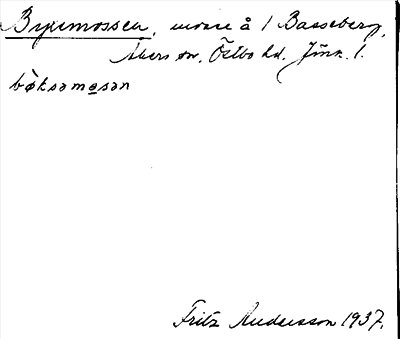 Byxemossen, mosse å 1 Basseberg,
Åkers sn. Östbo hd. Jönk. l.
bøksamosan
Fritz Andersson 1937.